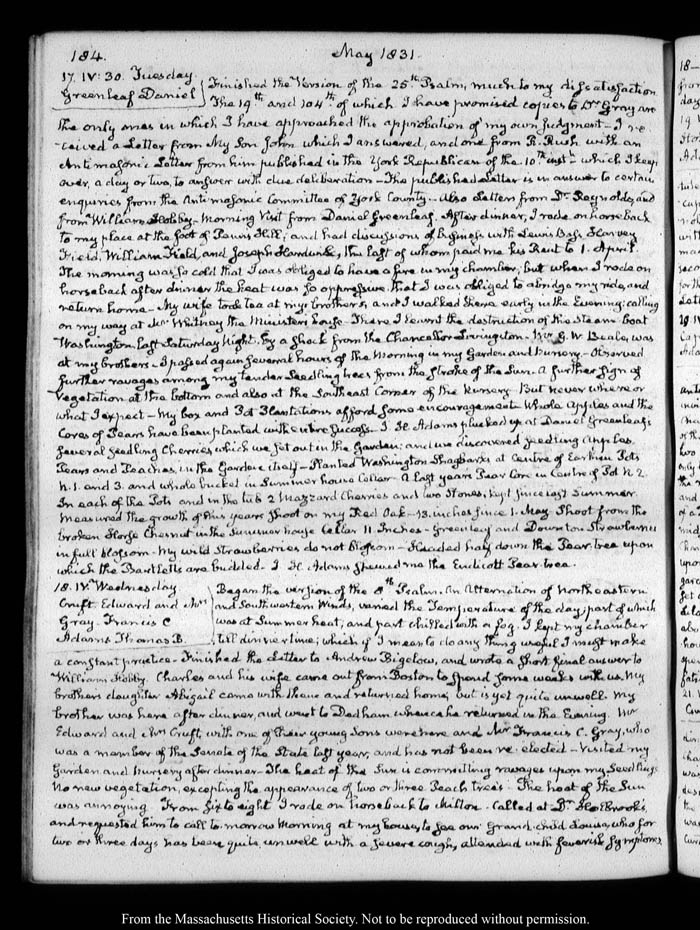 184.
May 1831.
17. IV: 30. Tuesday
Greenleaf Daniel
Finished the Version of the 25th Psalm, much to my dissatisfaction
The 19th and 104th of which I have promised copies to Dr Gray are
the only ones in which I have approached the approbation of my own Judgment - I re-
-ceived a Letter from My Son John which I answered, and one from R. Rush with an
Antimasonic Letter from him published in the York Republican of the 10th inst - which I keep
over, a day or two, to answer with due deliberation - The published Letter is in answer to certain
enquiries from the Antimasonic Committee of York County - Also Letters from Dr Reynolds, and
from William Hobby. Morning Visit from Daniel Greenleaf. After dinner, I rode on horseback
to my place at the foot of Penns Hill; and had discussions of business with Lewis Bass Harvey
Field, William Field, and Joseph Hardwick, the last of whom paid me his Rent to 1. April.
The morning was so cold that I was obliged to have a fire in my chamber; but when I rode on
horseback after dinner the heat was so oppressive that I was obliged to abridge my ride, and
return home - My wife took tea at my brother's, and I walked there early in the Evening; calling
on my way at Mr Whitney the Minister's house - There I heard the destruction of the Steam-boat
Washington last Saturday Night, by a shock from the Chancellor Livingston - Mrs G. W. Beale, was
at my brothers - I passed again several hours of the Morning in my Garden and Nursery - Observed
further ravages among my tender Seedling trees from the stroke of the Sun. A further sign of
vegetation at the bottom and also at the Southeast Corner of the Nursery - But never where or
what I expect - My box and Pot Plantations afford some encouragement. Whole Apples and the
Cores of Pears have been planted with entire success - J. H. Adams plucked up at Daniel Greenleaf's
several seedling Cherries which we set out in the Garden; and we discovered seedling apples
Pears and Peaches, in the Garden itself - Planted Washington Shagbarks at Centre of Earthen Pots
N. 1. and 3. and whole bucket in Summer house Cellar. A last years Pear Core in Centre of Pot N. 2
In each of the Pots and in the tub 2 Mazzard Cherries and two stones, kept since last Summer.
Measured the growth of this years shoot on my Red Oak - 13 inches since 1. May. Shoot from the
broken Horse Chestnut in the Summer house Cellar 11. Inches - Greenleaf and Downton Strawberries
in full blossom - My wild Strawberries do not blossom - Headed half down the Pear tree upon
which the Bartletts are budded - J. H. Adams shewed me the Endicott Pear tree.
18. IV. Wednesday
Cruft. Edward and Mrs
Gray. Francis C
Adams Thomas B.
Began the version of the 8th Psalm. An Alternation of Northeastern
and Southwestern Winds, varied the Temperature of the day; part of which
was at Summer heat, and part chilled with a fog. I kept my chamber
till dinner time; which if I mean to do any thing useful I must make
a constant practice - Finished the Letter to Andrew Bigelow, and wrote a short final answer to
William Hobby. Charles and his wife came out from Boston to spend some weeks with us. My
brothers daughter Abigail came with them and returned home, but is yet quite unwell. My
brother was here after dinner, and went to Dedham whence he returned in the Evening. Mr
Edward and Mrs Cruft, with one of their young Sons were here and Mr Francis C. Gray, who
was a member of the Senate of the State last year, and has not been re-elected - Visited my
Garden and Nursery after dinner - The heat of the Sun is committing ravages upon my seedlings
No new vegetation, excepting the appearance of two or three Peach trees. The heat of the Sun
was annoying. From six to eight I rode on horseback to Milton. Called at Dr Holbrook's,
and requested him to call to-morrow Morning at my house, to see our Grand child Louisa, who for
two or three days has been quite unwell with a severe cough, attended with feverish symptoms
From the Massachusetts Historical Society. Not to be reproduced without permission.